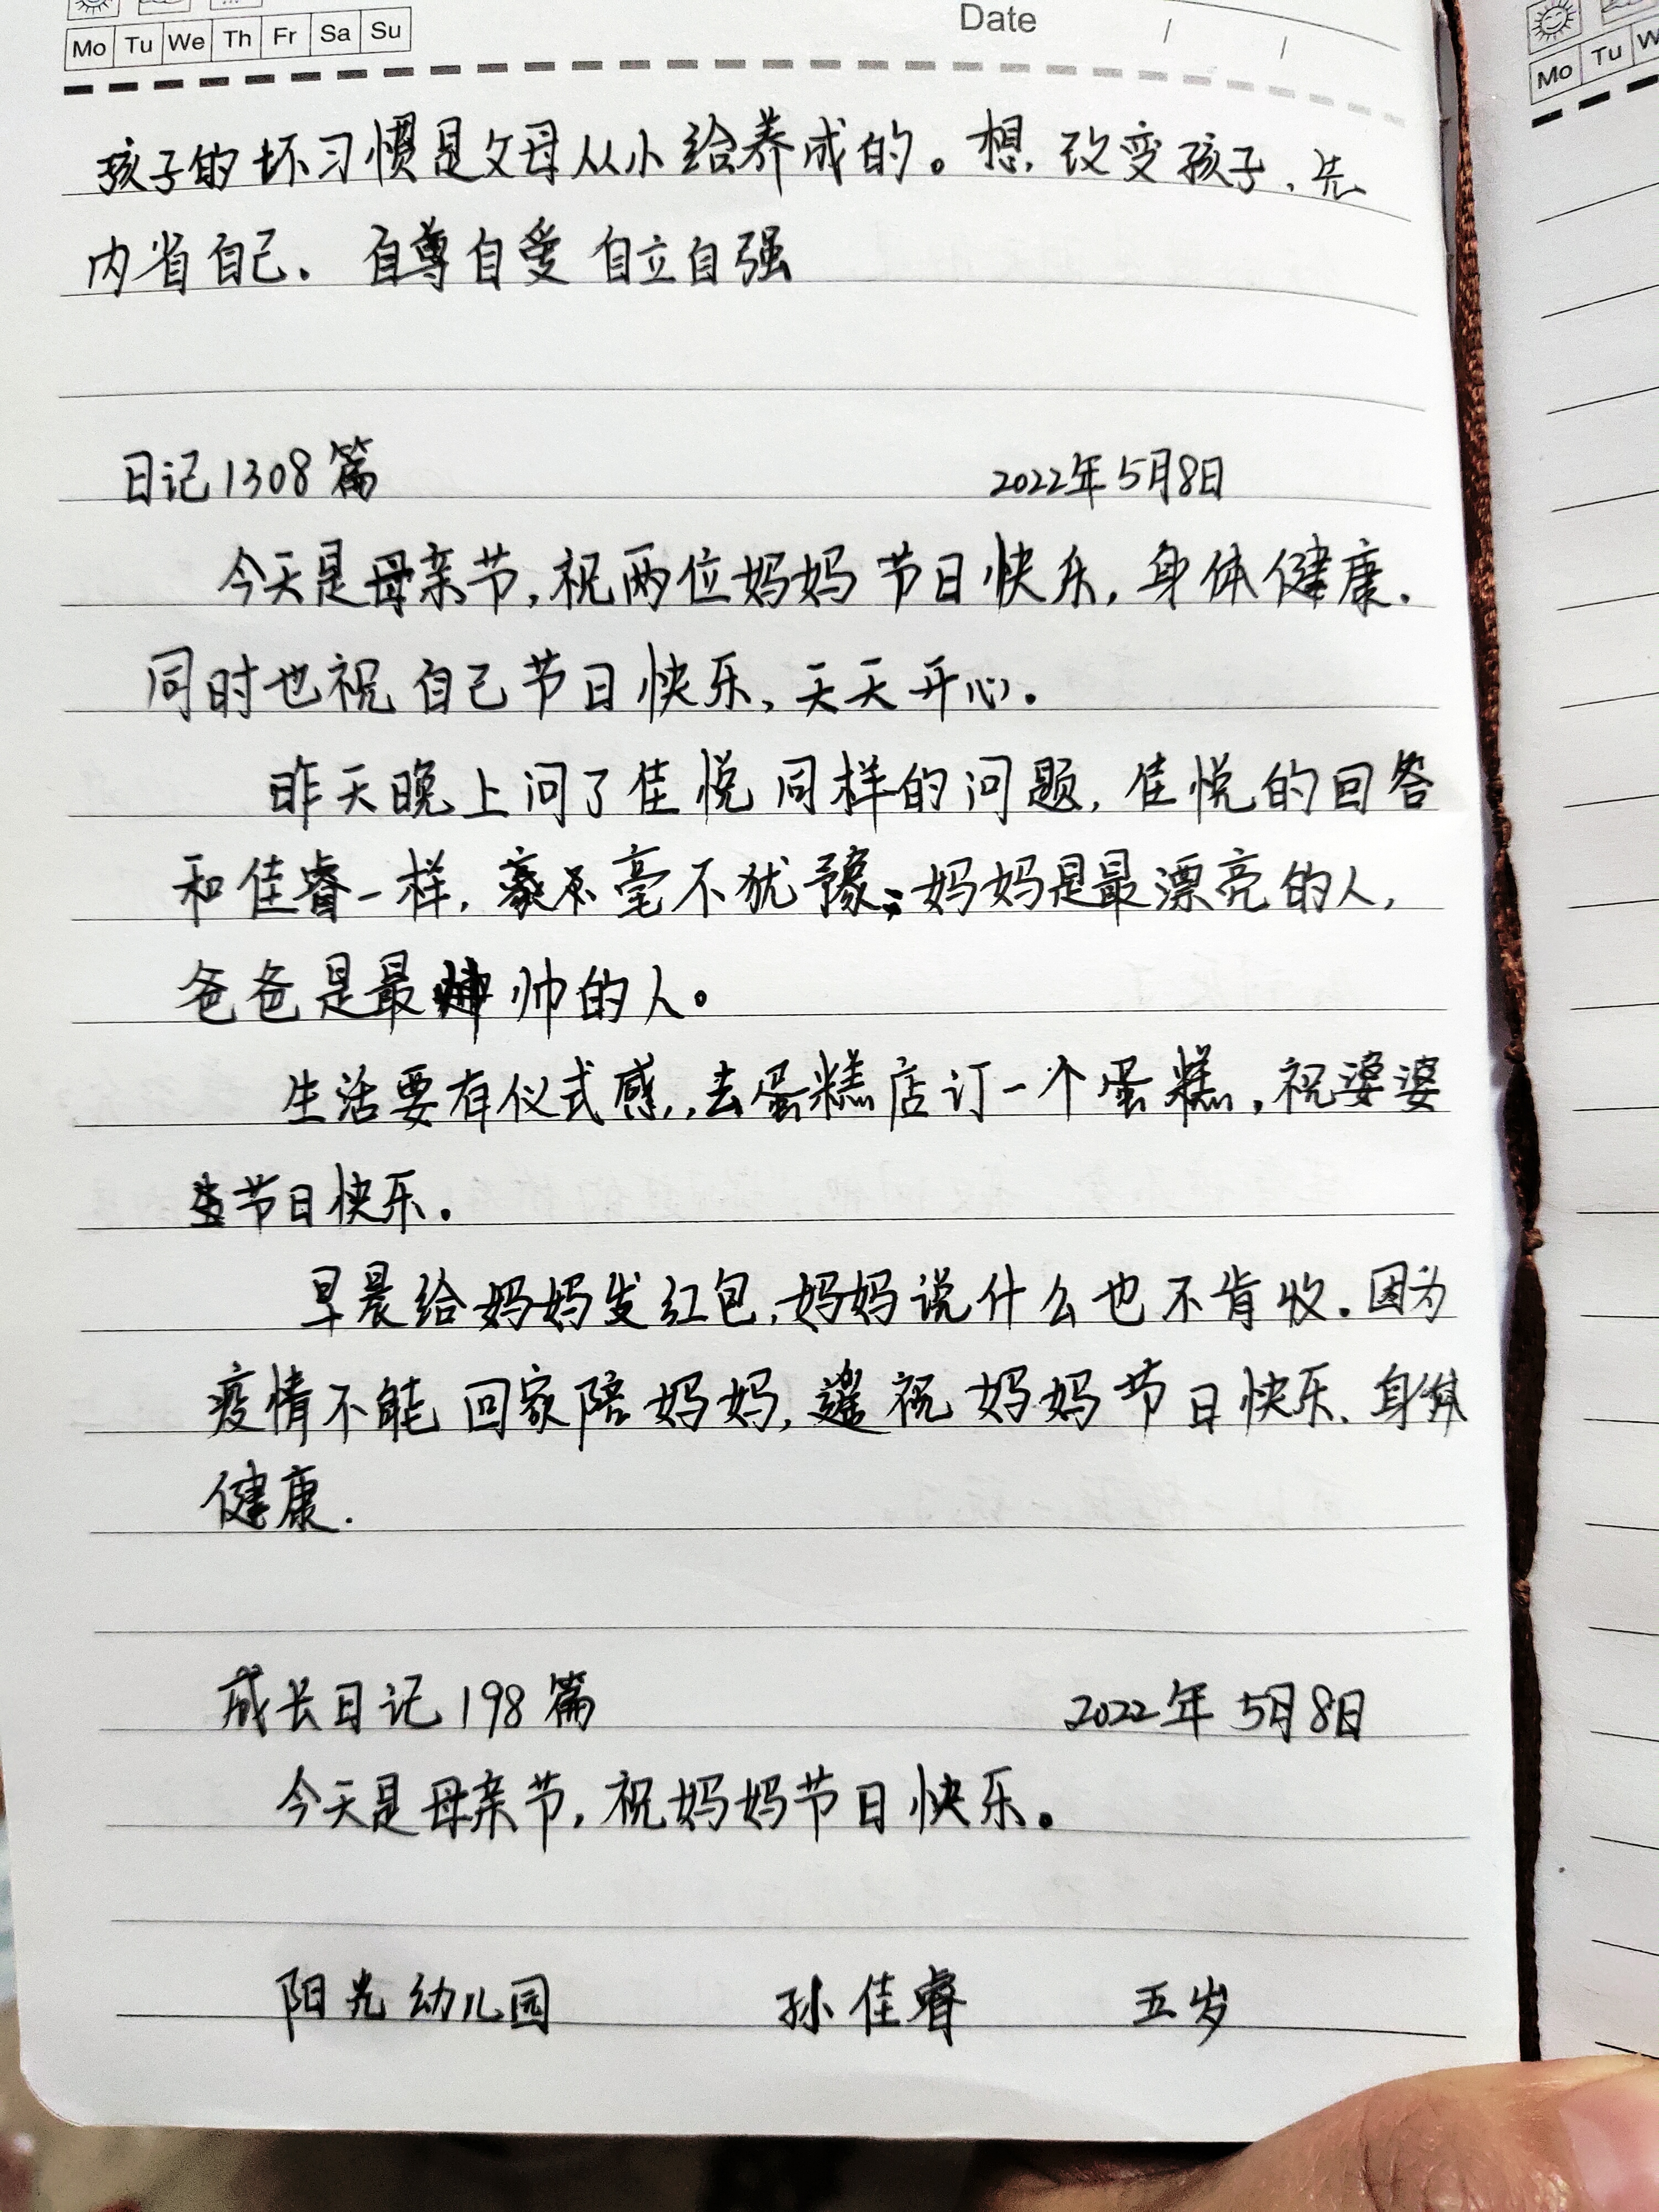 Mo Tu We Th Fr Sa Su
Date / /
Mo Tu
孩子的坏习惯是父母从小给养成的。想,改变孩子,先
内省自己. 自尊自爱 自立自强
日记1308篇 2022年5月8日
今天是母亲节,祝两位妈妈节日快乐,身体健康.
同时也祝自己节日快乐,天天开心。
昨天晚上问了佳悦同样的问题,佳悦的回答
和佳睿一样,毫不犹豫;妈妈是最漂亮的人,
爸爸是最帅的人。
生活要有仪式感,,去蛋糕店订一个蛋糕,祝婆婆
节日快乐.
早晨给妈妈发红包,妈妈说什么也不肯收.因为
疫情不能回家陪妈妈,祝妈妈节日快乐.身体
健康.
成长日记198篇 2022年5月8日
今天是母亲节,祝妈妈节日快乐。
阳光幼儿园 孙佳睿 五岁